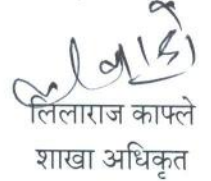 लिलाराज काफ्ले
शाखा अधिकृत